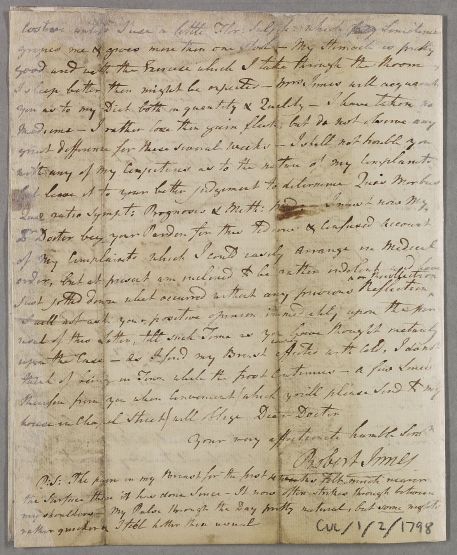 costive unless I use a little Flor: Sulph: which sometimes
gripes me & gives more than one Stool — My Stomach is pretty
good and with the Exercise which I take through the Room
I sleep better than might be expected — Mrs. Innes will acquaint
you as to my Diet both in quantity & Quality — I have taken no
Medicine — I rather lose than gain flesh, but do not observe any
great difference for these several weeks — I shall not trouble you
with any of my Conjectures as to the nature of my Complaints
but leave it to your better judgement to determine Quis Morbus
Quae ratio Sympt: Prognosis & Meth: I must now My
Dr Doctor beg your Pardon for this tedious & confused Account
of my Complaints which I could easily arrange in Medical
order, but at present am inclined to be rather indolent
just jotted down what occurred without any previous Reflection
I will not ask your positive opinion immediately upon the per
usal of this letter, till such Time as you have thought maturely
upon the Case — as I find my Breast affected with cold, I do not
think of riding in Town while the frost continues — a few lines
therefore from you when convenient (which you'll please send to my
house in Chapel Street) will oblige Dear Doctor
Your very affectionate humble Servt
Robert Innes
P.S: The pain in my Breast for the first felt much nigher
the Surface than it has done since — It now often strikes through between
my shoulders — My Pulse through the Day pretty natural, but some nights
rather quicker — I still better than usual
CUL/1/2/1798